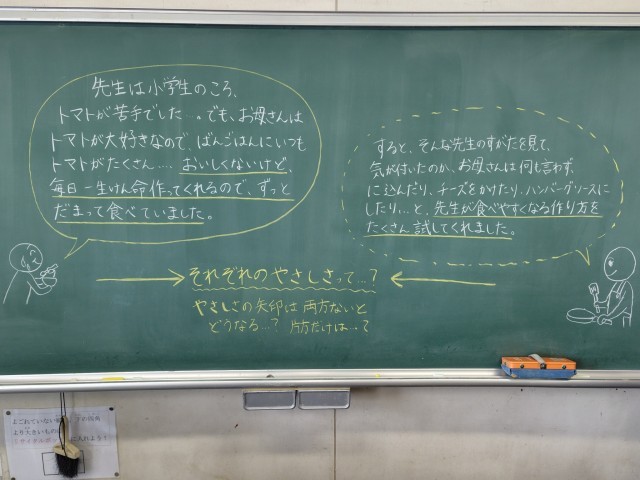 先生は小学生のころ、
トマトが苦手でした…。でも、お母さんは
トマトが大好きなので、ばんごはんにいつも
トマトがたくさん…. おいしくないけど、
毎日一生けん命作ってくれるので、ずっと
だまって食べていました。
すると、そんな先生のすがたを見て、
気が付いたのか、お母さんは何も言わず、
に込んだり、チーズをかけたり、ハンバーグソースに
したり…と、先生が食べやすくなる作り方を
たくさん試してくれました。
それぞれのやさしさって…?
やさしさの矢印は両方ないと
どうなる…? 片方だけは…?
よごれていない
より大きいもの